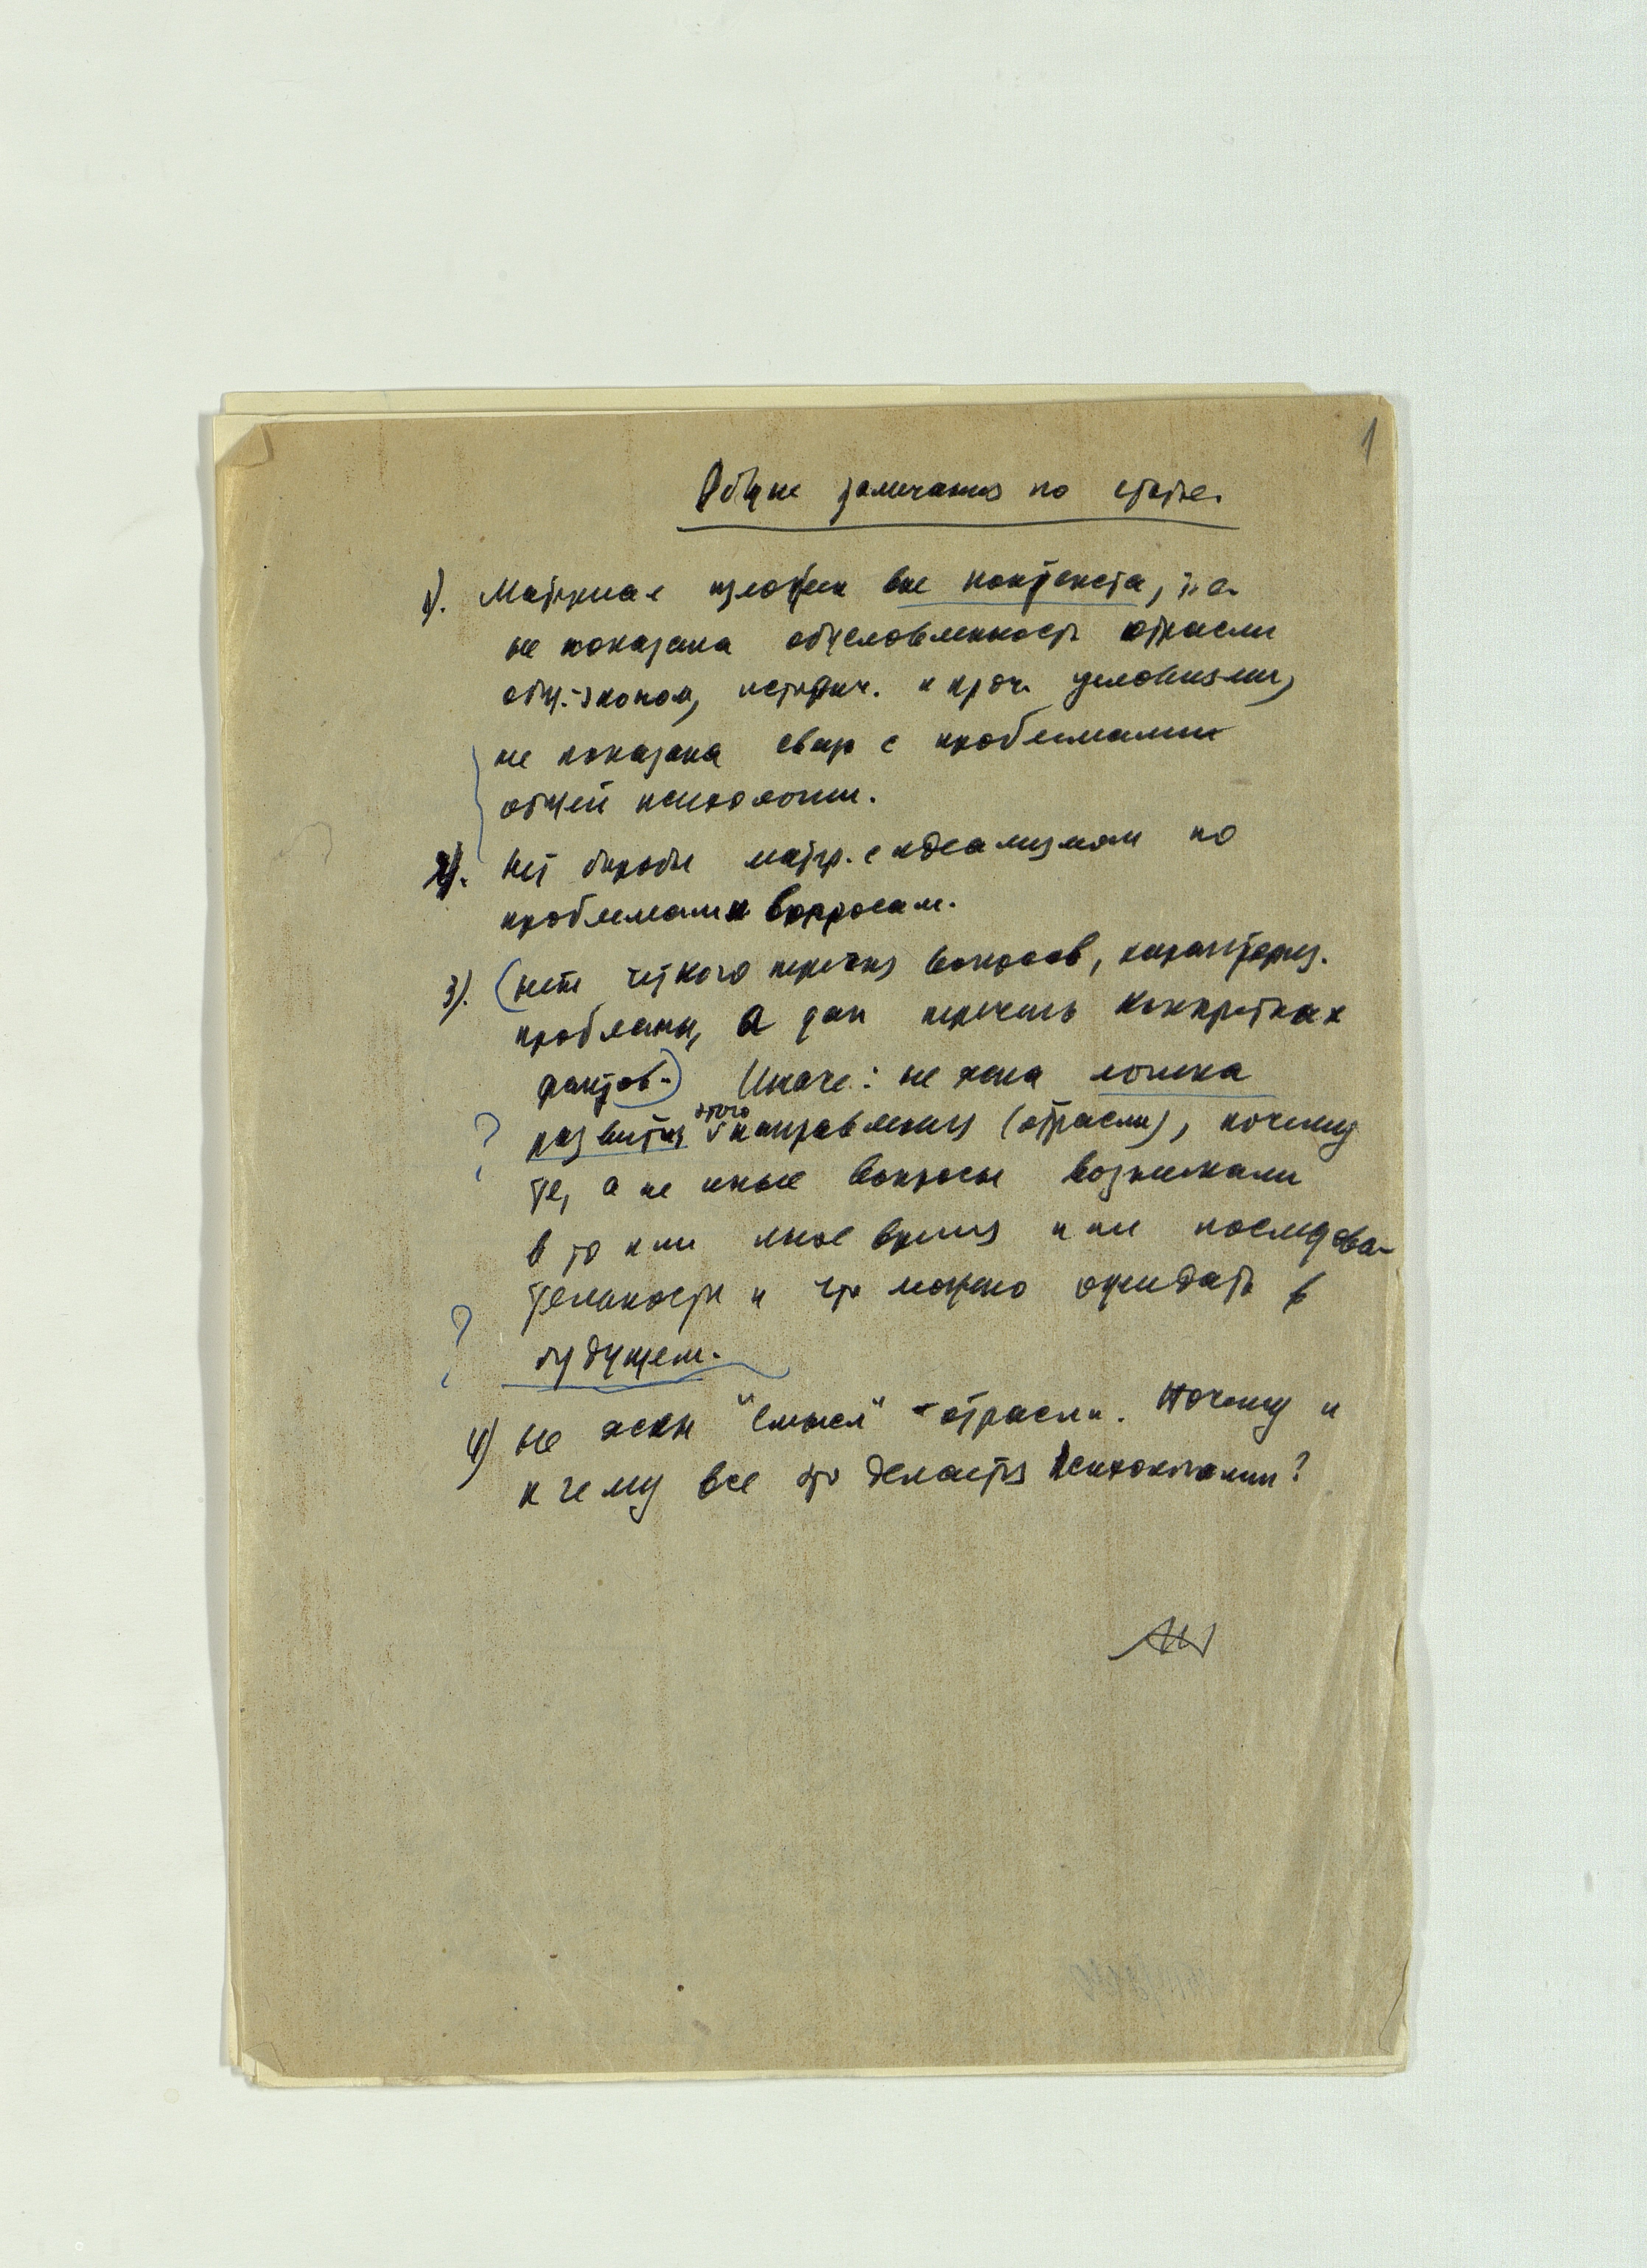 1
Общие замечания по статье.
1). Материал изложен вне контекста, т.е.
не показана обусловленность отрасли
общ.-эконом, историч. и проч. условиями,
не показана связь с проблемами
общей психологии.
2). Нет борьбы матер. с идеализмом по
проблемам и вопросам.
3). (нет четкого перечня вопросов, характериз.
проблемы, а дан перечень конкретных
фактов.) Иначе: не ясна логика
? развития этого направления (отрасли), почему
те, а не иные вопросы возникали
в то или иное время или последова-
тельности и что можно ожидать в
? будущем.
4) Не ясен "смысл" - отрасли. Почему и
к чему все это делается психологами?